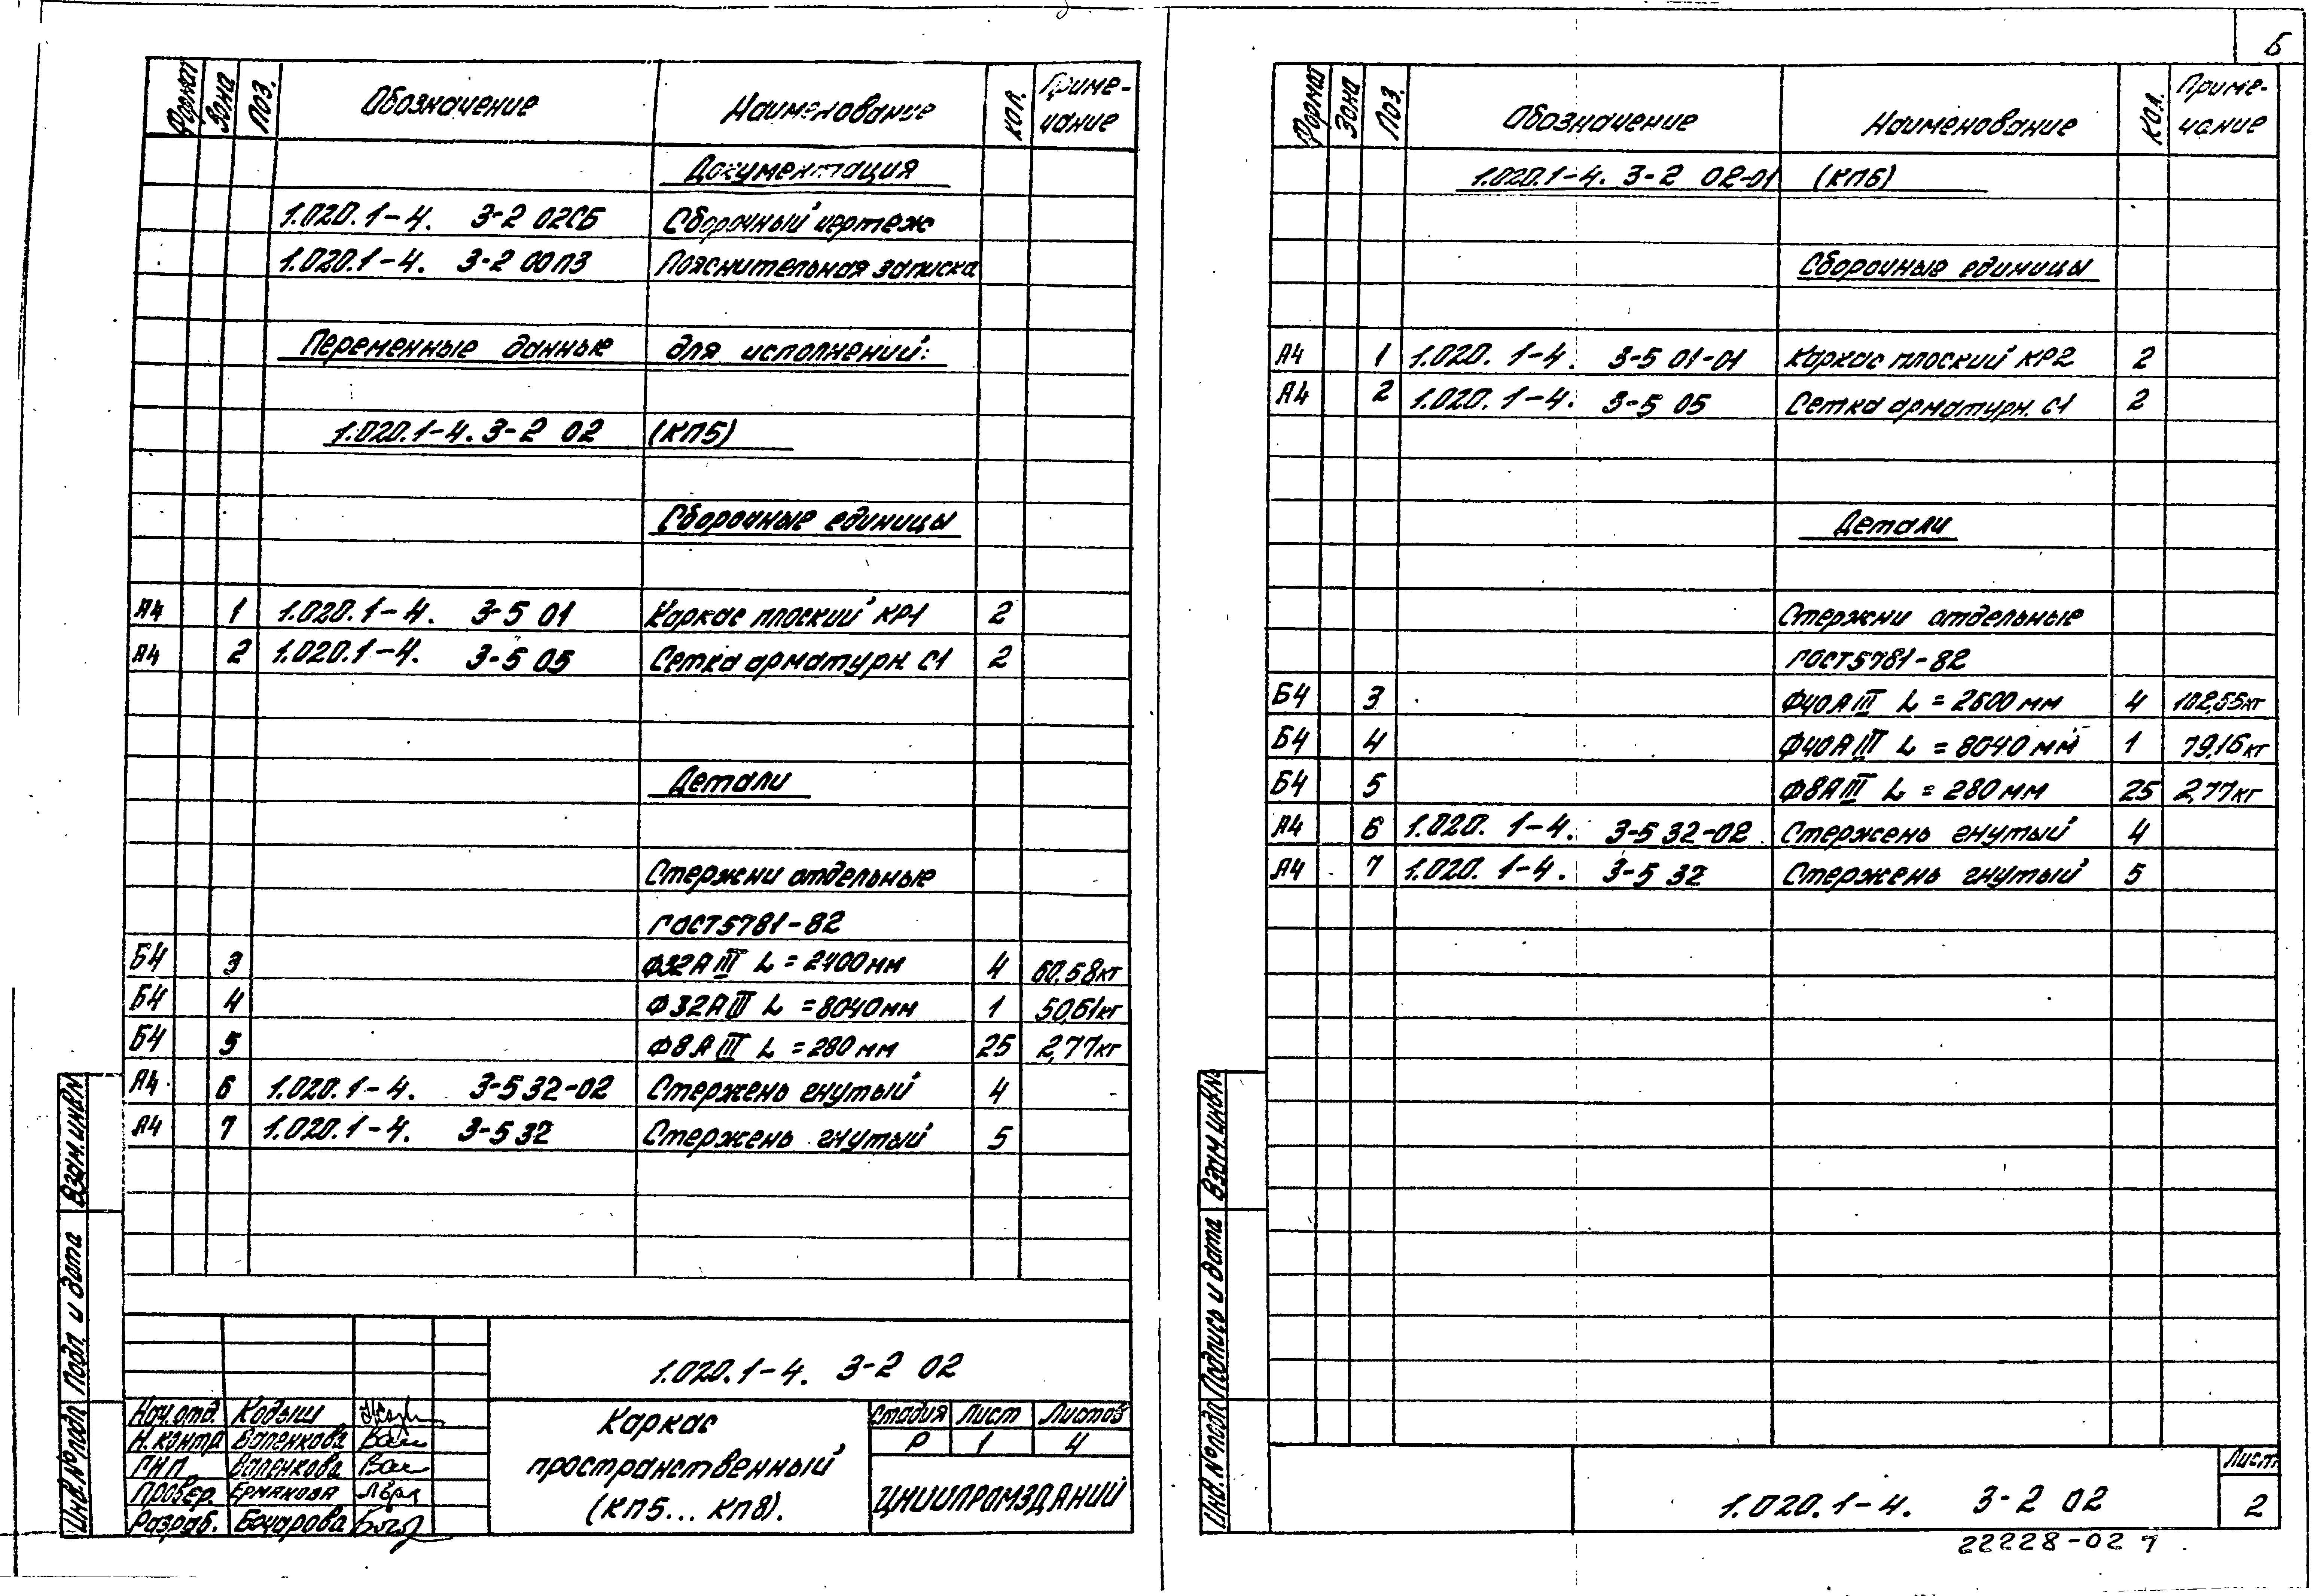 Формат Зона Поз. Обозначение Наименование Кол. Приме-
чание
Документация
1.020.1-4. 3-2 02СБ Сборочный чертеж
1.020.1-4. 3-2 00ПЗ Пояснительная записка
Переменные данные для исполнений:
1.020.1-4. 3-2 02 (КП5)
Сборочные единицы
А4 1 1.020.1-4. 3-5 01 Каркас плоский КР1 2
А4 2 1.020.1-4. 3-5 05 Сетка арматурн. С1 2
Детали
Стержни отдельные
ГОСТ 5781-82
Б4 3 Ф32АIII L=2400мм 4 60,58кг
Б4 4 Ф32АIII L=8040мм 1 50,61кг
Б4 5 Ф8АIII L=280мм 25 2,77кг
А4 6 1.020.1-4. 3-5 32-02 Стержень гнутый 4
А4 7 1.020.1-4. 3-5 32 Стержень гнутый 5
Взам.инв.№
Подп. и дата
Инв.№подл.
1.020.1-4. 3-2 02
Нач.отд. Кодыш
Н.контр Валенкова
ГИП Валенкова
Провер. Ермакова
Разраб. Бочарова
Каркас
пространственный
(КП5...КП8).
Стадия Лист Листов
Р 1 4
ЦНИИПРОМЗДАНИЙ
6
Формат Зона Поз. Обозначение Наименование Кол. Приме-
чание
1.020.1-4. 3-2 02-01 (КП6)
Сборочные единицы
А4 1 1.020.1-4. 3-5 01-01 Каркас плоский КР2 2
А4 2 1.020.1-4. 3-5 05 Сетка арматурн. С1 2
Детали
Стержни отдельные
ГОСТ 5781-82
Б4 3 Ф40АIII L=2600мм 4 102,55кг
Б4 4 Ф40АIII L=8040мм 1 79,16кг
Б4 5 Ф8АIII L=280мм 25 2,77кг
А4 6 1.020.1-4. 3-5 32-02 Стержень гнутый 4
А4 7 1.020.1-4. 3-5 32 Стержень гнутый 5
Взам.инв.№
Подпись и дата
Инв.№подл
1.020.1-4. 3-2 02
Лист
2
22228-02 7